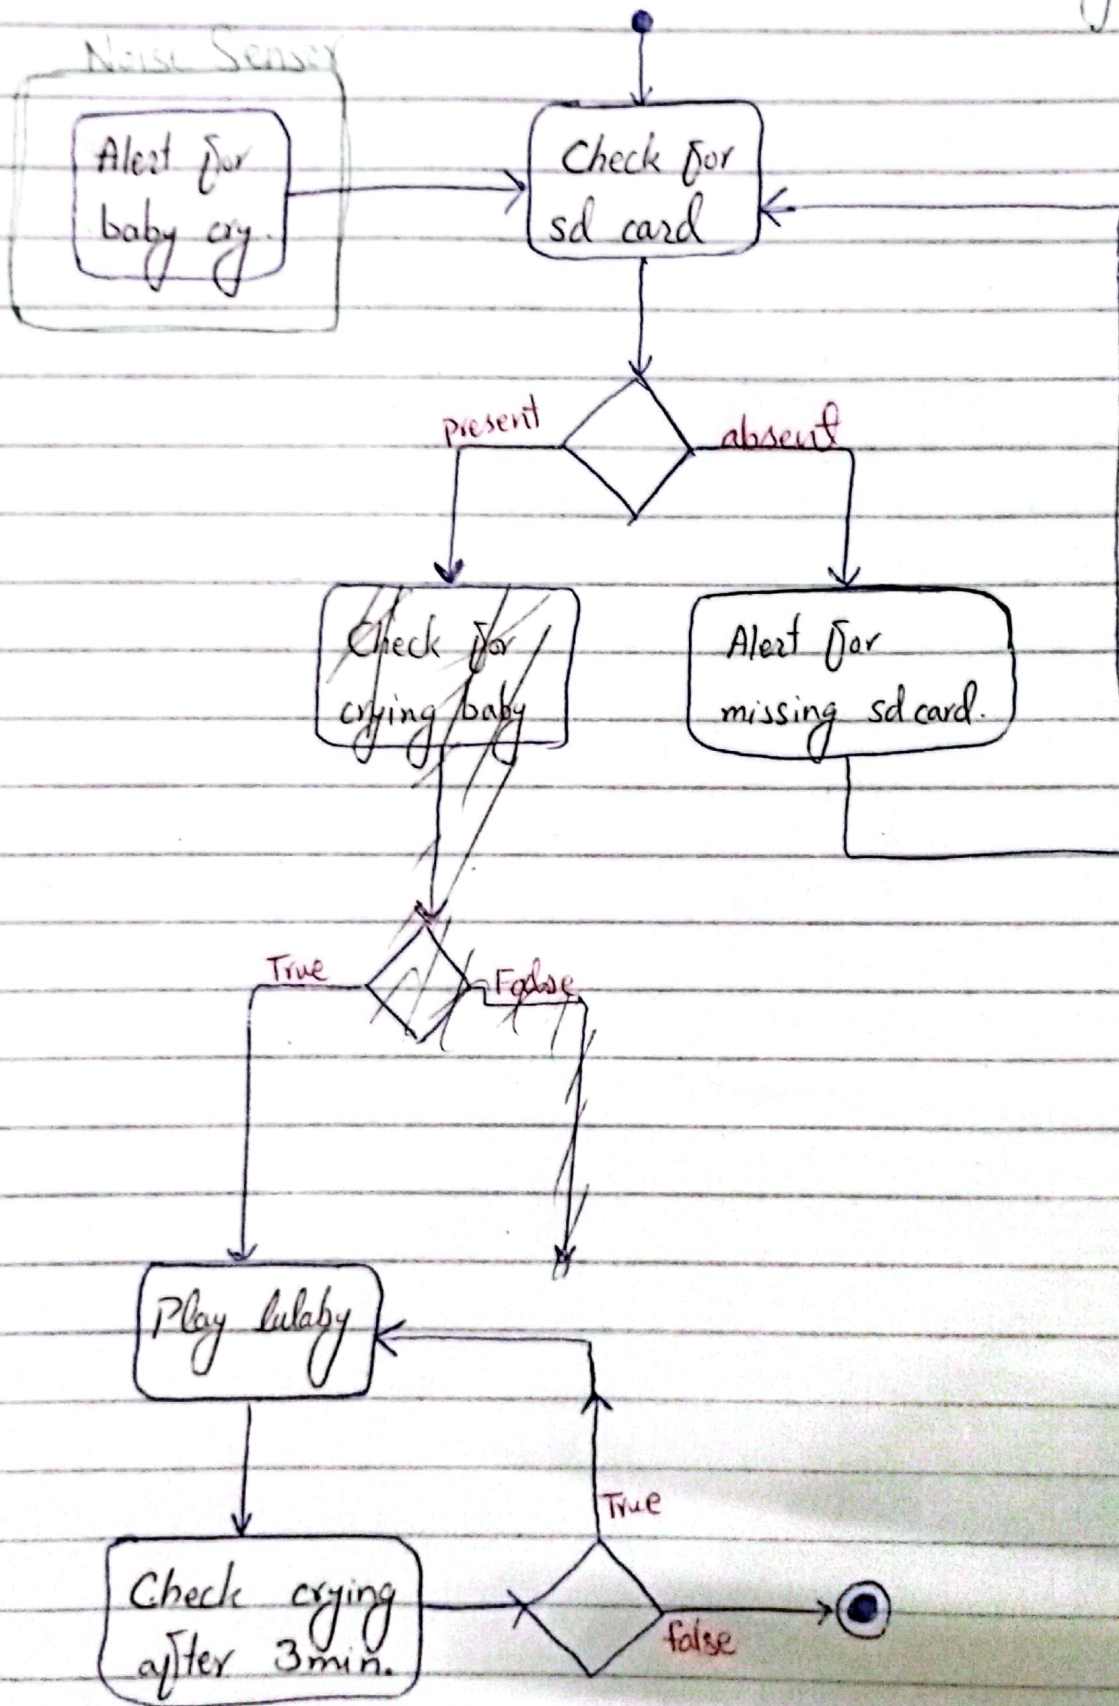 Noise Sensor
Alert for
baby cry.
Check for
sd card
present
absent
Check for
crying baby
Alert for
missing sd card.
True
False
Play lulaby
True
Check crying
after 3min.
false